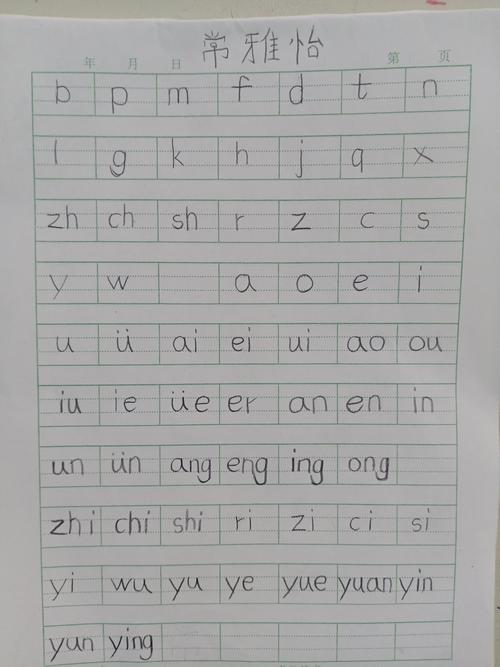 常雅怡
年 月 日 第 页
b p m f d t n
l g k h j q x
zh ch sh r z c s
y w a o e i
u ü ai ei ui ao ou
iu ie üe er an en in
un ün ang eng ing ong
zhi chi shi ri zi ci si
yi wu yu ye yue yuan yin
yun ying